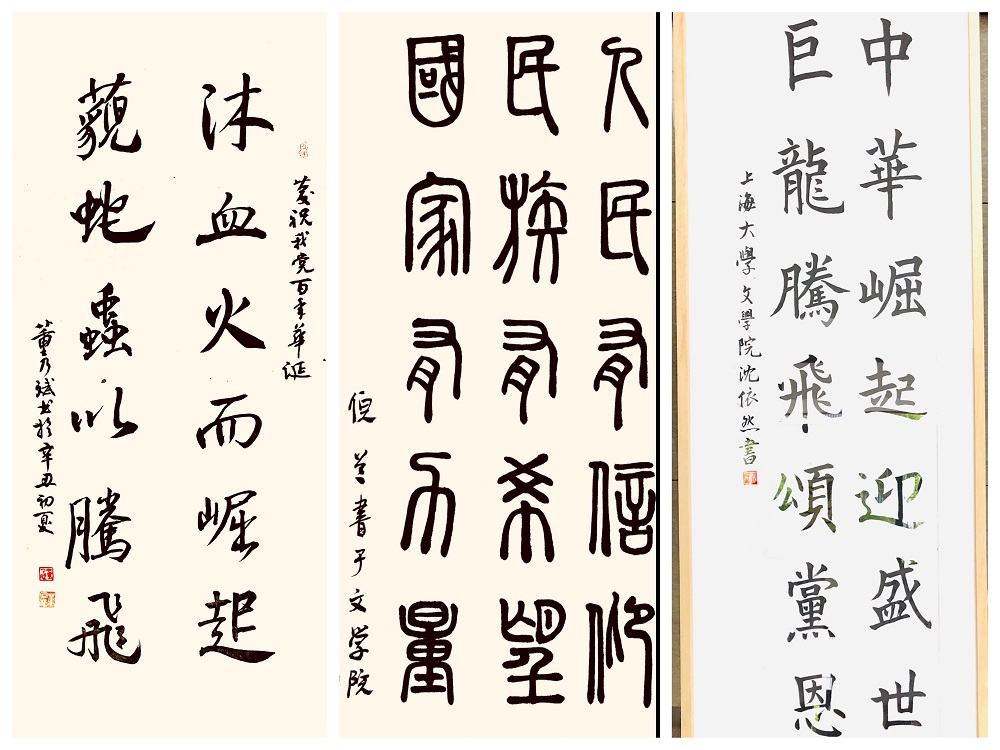 慶祝我党百年華诞
沐血火而崛起
藐蛇蟲以騰飛
董乃斌书於辛丑初夏
人民有信仰
民族有希望
國家有力量
倪兰書于文学院
中華崛起迎盛世
巨龍騰飛頌黨恩
上海大學文學院沈依然書